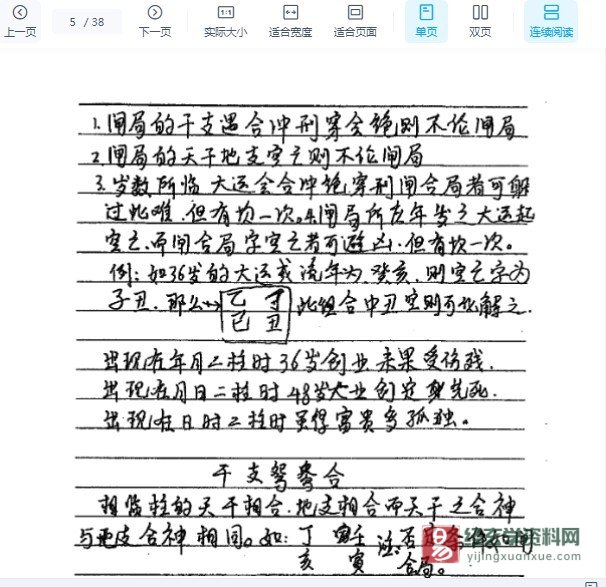 上一页 5 / 38 下一页 实际大小 适合宽度 适合页面 单页 双页 连续阅读
1.闸局的干支遇合冲刑穿会绝则不伦闸局
2.闸局的天干地支空亡则不伦闸局
3.岁数所临大运会合冲绝穿刑闸合局者可解
过此难.但有坎一次。4.闸局所在年岁之大运起
空亡.而闸合局字空亡者可避凶.但有坎一次。
例:如36岁的大运或流年为癸亥.则空亡字为
子丑.那么→ 乙丁 此组合中丑空则可化解之.
巳丑
出现在年月二柱时36岁创业来果受伤残.
出现在月日二柱时48岁大业创定身先死.
出现在日时二柱时虽得富贵多孤独。
干支鸳鸯合
相临柱的天干相合.地支相合而天干之合神
与地支合神相同。如:丁 壬 注:否 条件 同
亥 寅 合局。
易 经玄学资料网
yijingxuanxue.com